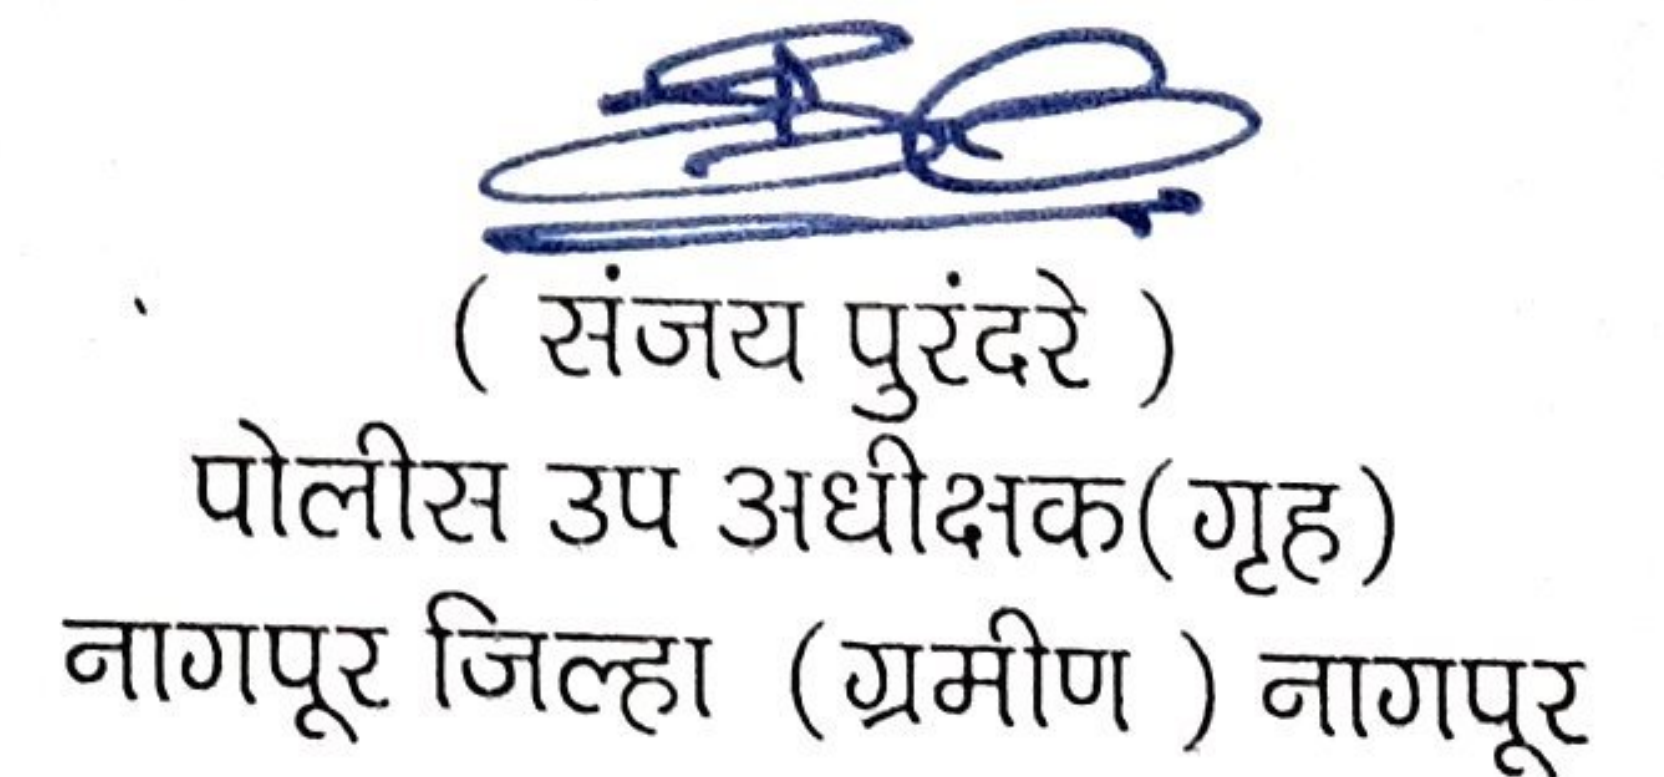 ( संजय पुरंदरे )
पोलीस उप अधीक्षक(गृह)
नागपूर जिल्हा (ग्रमीण ) नागपूर